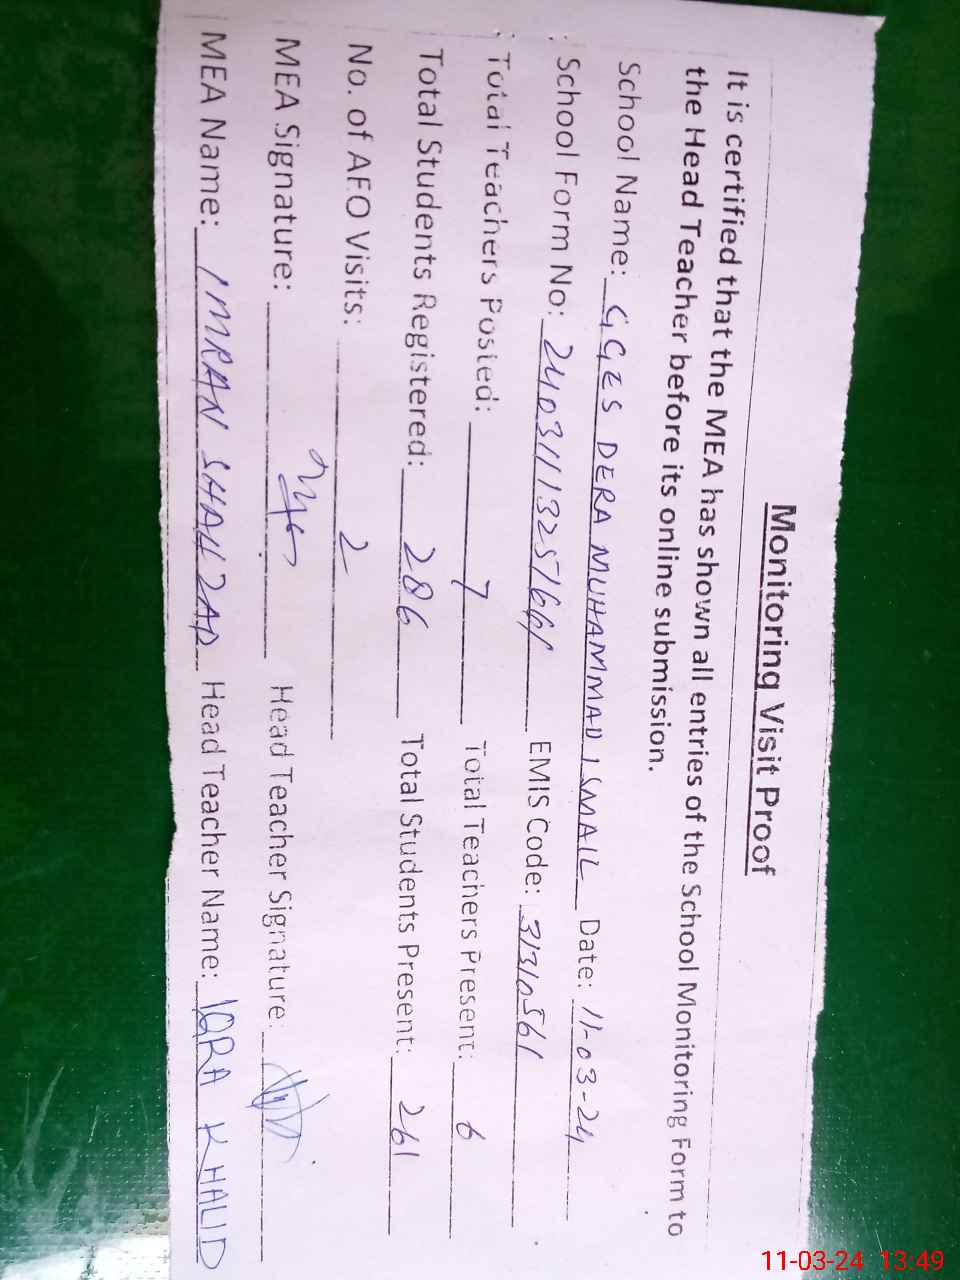 Monitoring Visit Proof
It is certified that the MEA has shown all entries of the School Monitoring Form to
the Head Teacher before its online submission.
School Name: GGES DERA MUHAMMAD ISMAIL Date: 11-03-24
School Form No: 24031113251661 EMIS Code: 31310561
Total Teachers Posted: 7 Total Teachers Present: 6
Total Students Registered: 286 Total Students Present: 261
No. of AEO Visits: 2
MEA Signature: Head Teacher Signature:
MEA Name: IMRAN SHAHZAD Head Teacher Name: IQRA KHALID
11-03-24 13:49